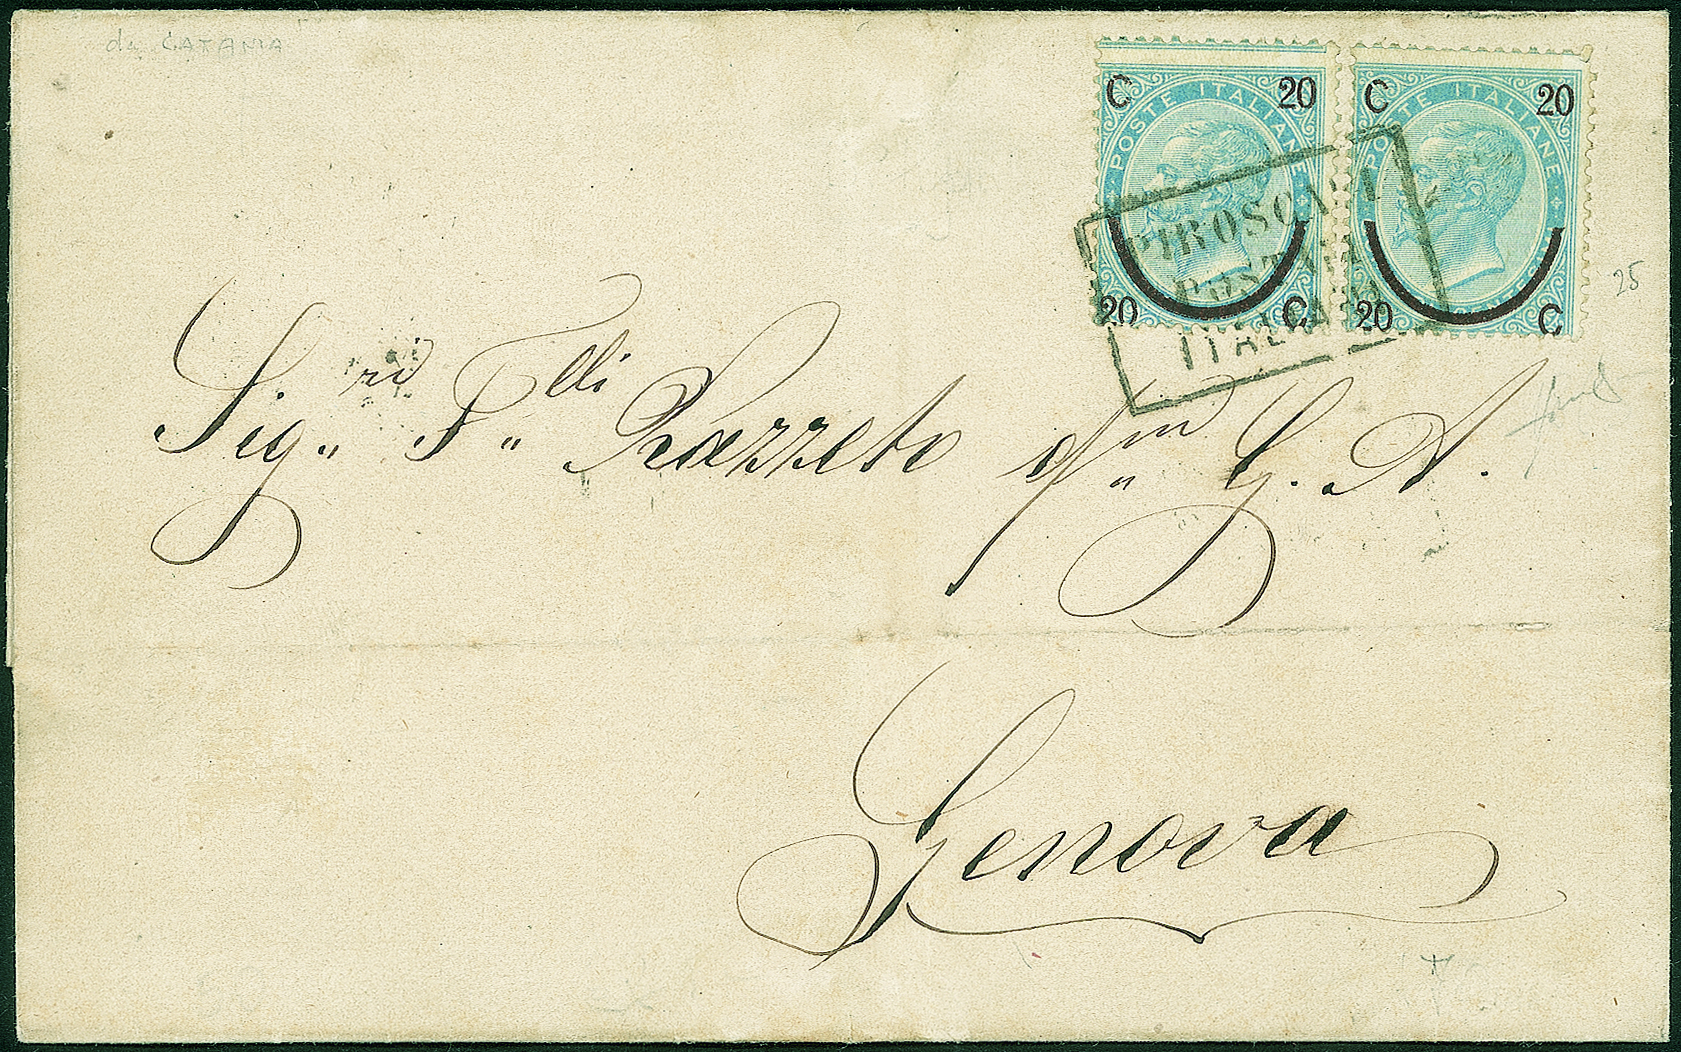 da CATANIA
C 20
POSTE ITALIANE
20 C
C 20
POSTE ITALIANE
20 C
PIROSCAFI
POSTALI
ITALIANI
25
Sig.ri F.lli Razzeto qm G. A.
Genova